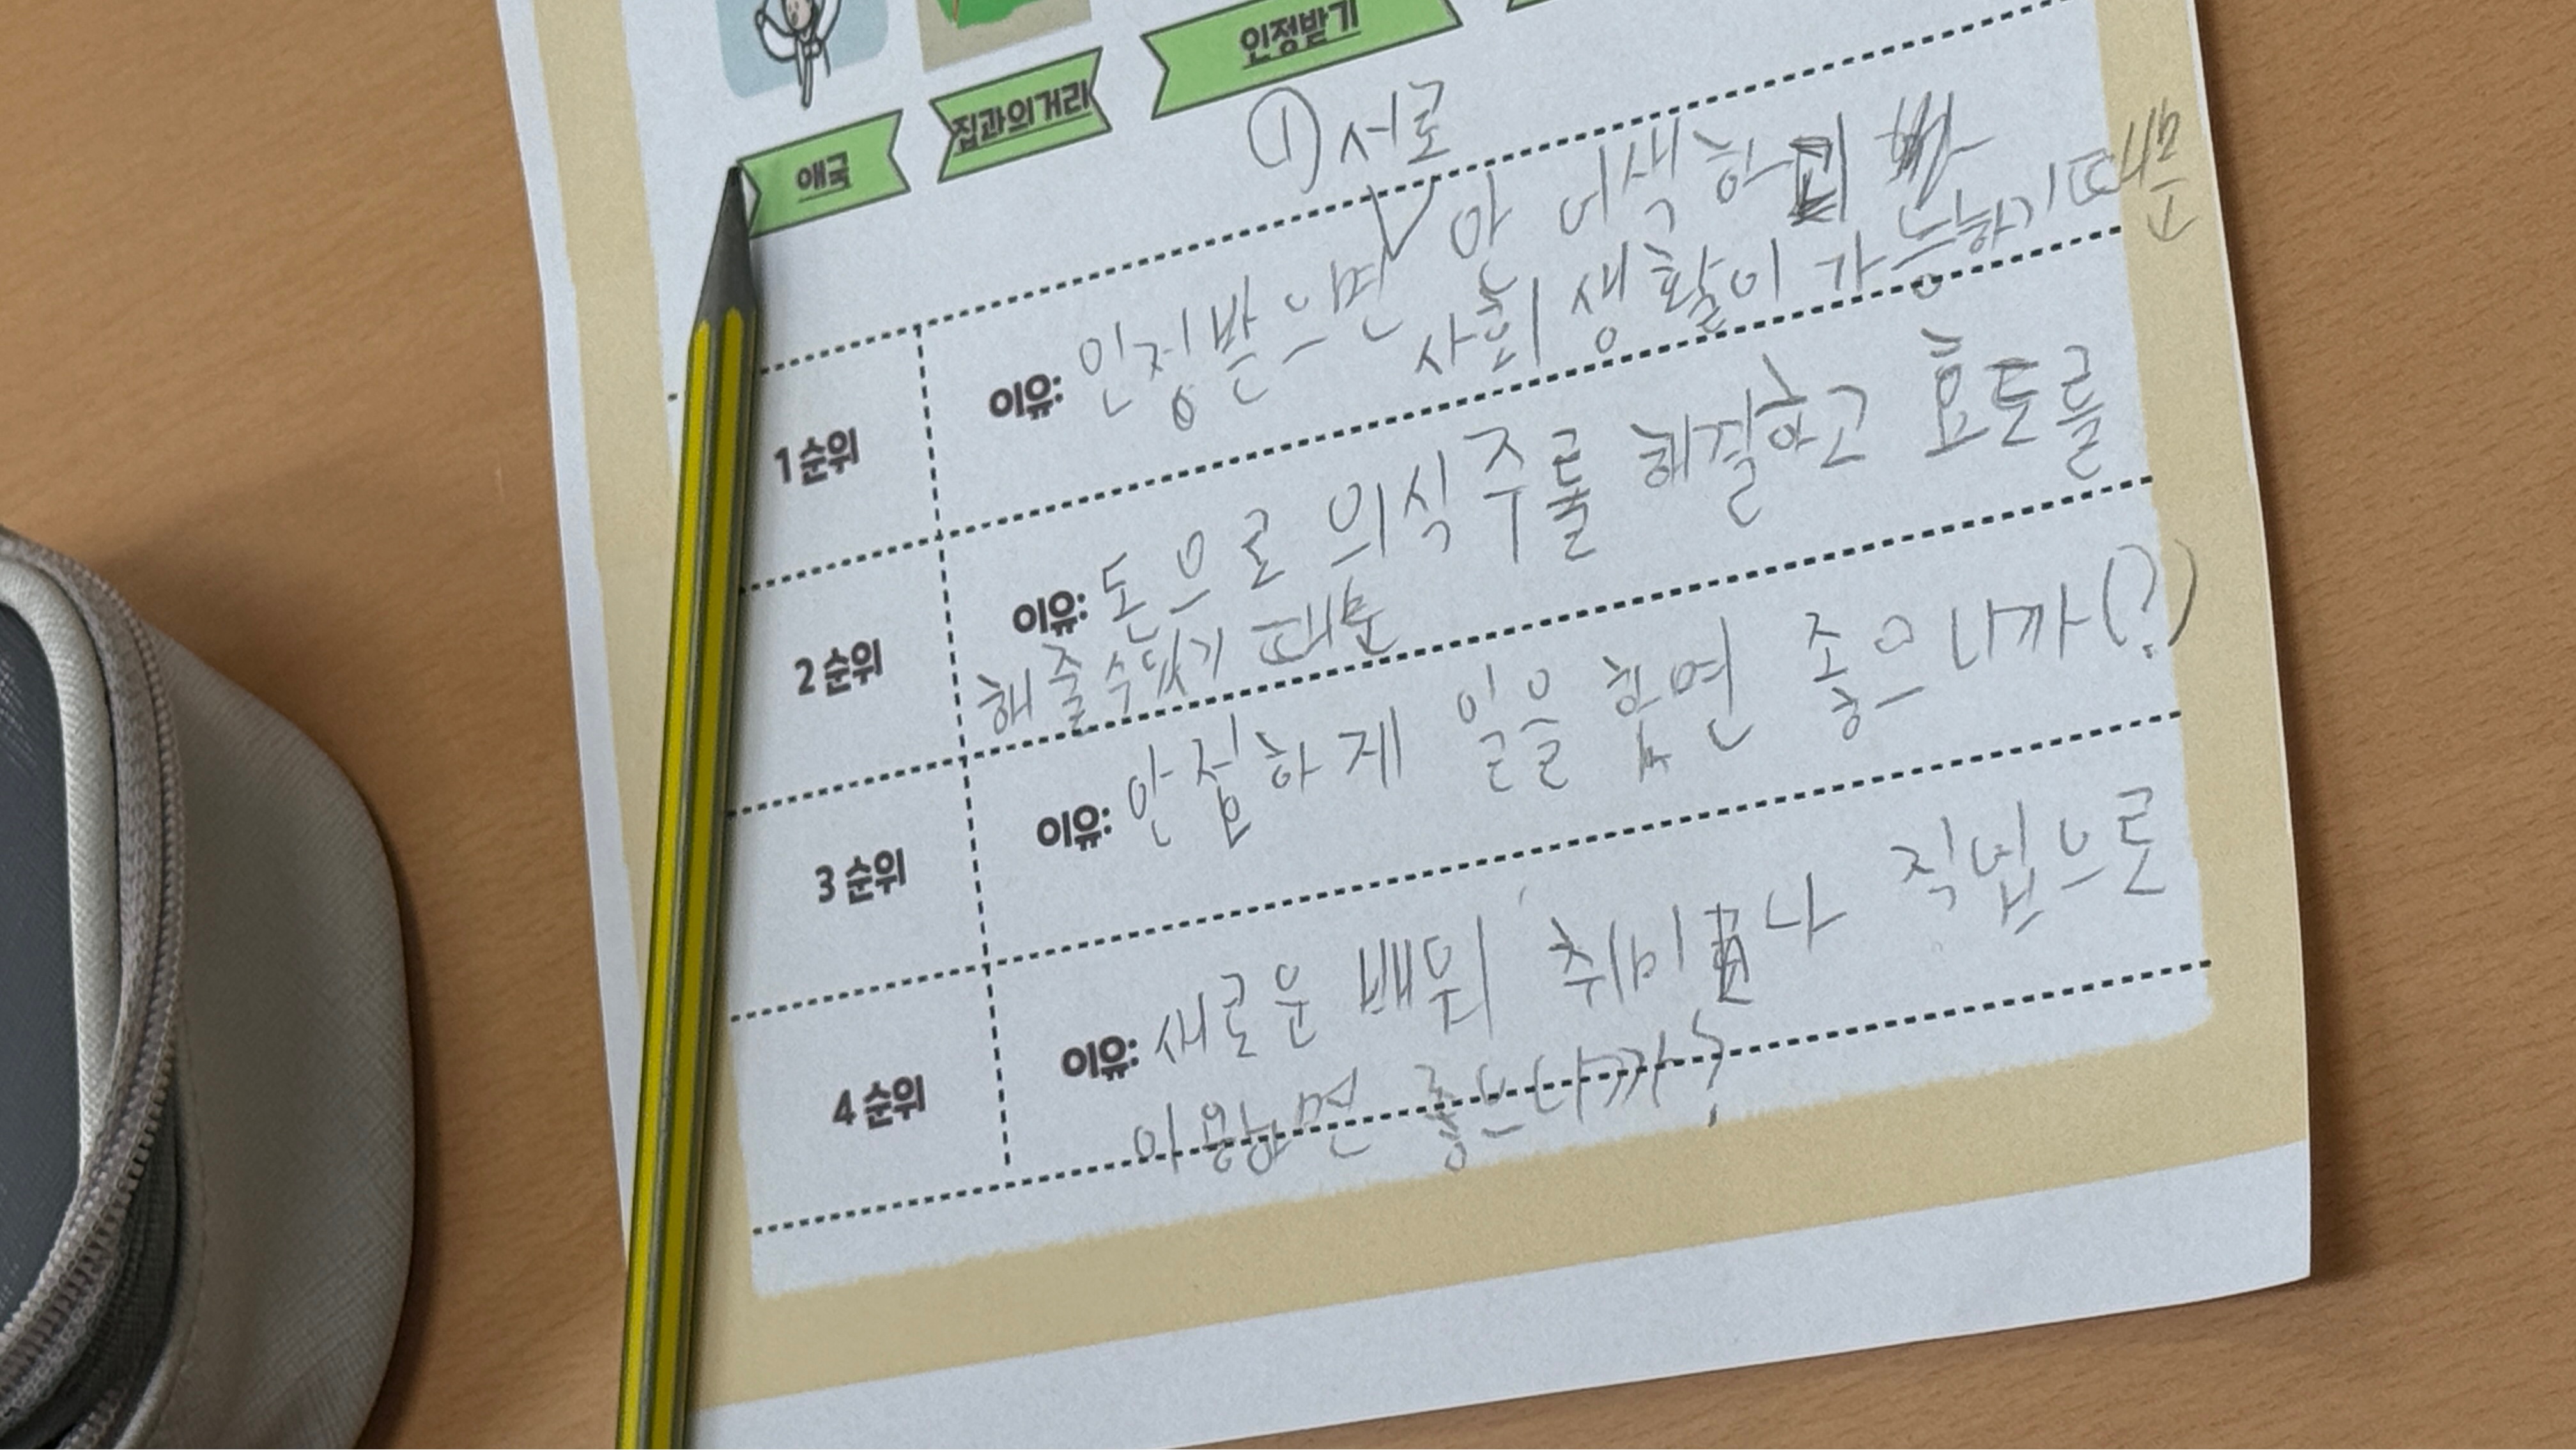 애국
집과의거리
인정받기
① 서로
1 순위
이유: 인정받으면 ∨ 안 어색한
사회 생활이 가능하기 때문
2 순위
이유: 돈으로 의식주를 해결하고 효도를
해줄수있기 때문
3 순위
이유: 안점하게 일을 하면 좋으니까(?)
4 순위
이유: 새로운 배워 취미나 직업으로
이용하면 좋으니까?